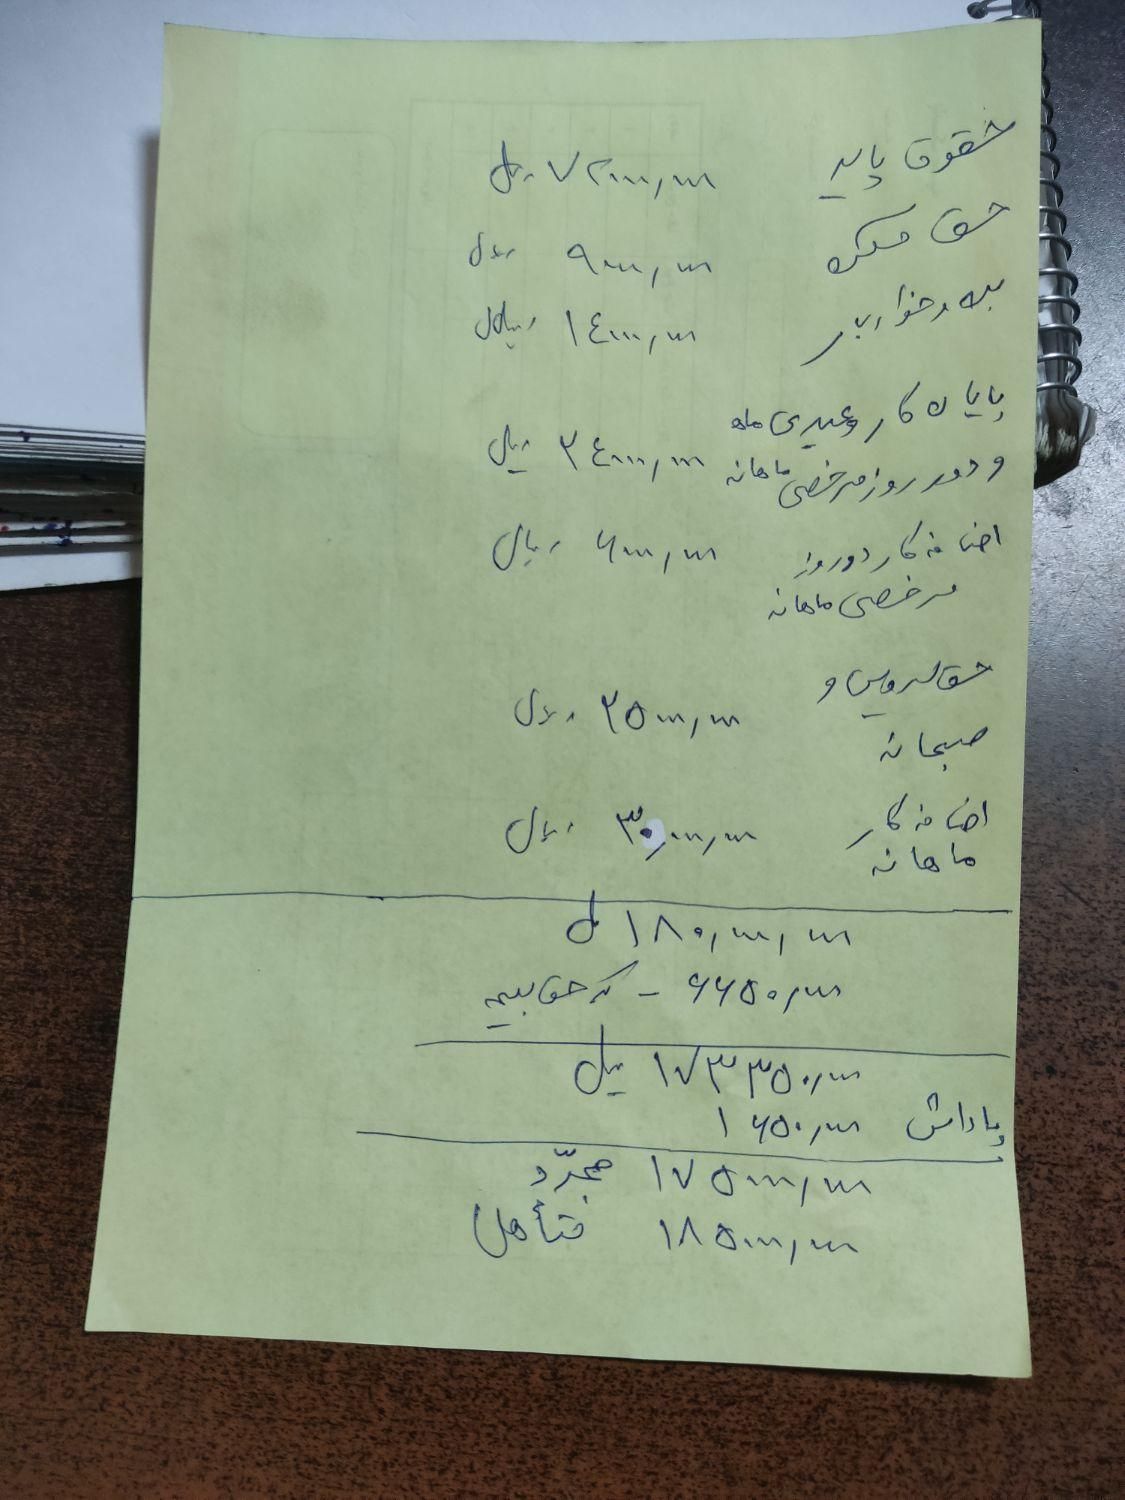 حقوق پایه ۷۲۰۰۰,۰۰۰ ریال
حق مسکن ۹۰۰۰,۰۰۰ ریال
بن و خواربار ۱٤۰۰۰,۰۰۰ ریال
پایان کار و عیدی ماه
و دو روز مرخصی ماهانه ۲٤۰۰۰,۰۰۰ ریال
اضافه کار دو روز ۶۰۰۰,۰۰۰ ریال
مرخصی ماهانه
حق سرویس و ۲۵۰۰۰,۰۰۰ ریال
صبحانه
اضافه کار ۳۰,۰۰۰,۰۰۰ ریال
ماهانه
۱۸۰,۰۰۰,۰۰۰ ریال
۶۶۵۰,۰۰۰ - کسر حق بیمه
۱۷۳۳۵۰,۰۰۰ ریال
پاداش ۱۶۵۰,۰۰۰
۱۷۵۰۰۰,۰۰۰ مجرّد
۱۸۵۰۰۰,۰۰۰ متأهل